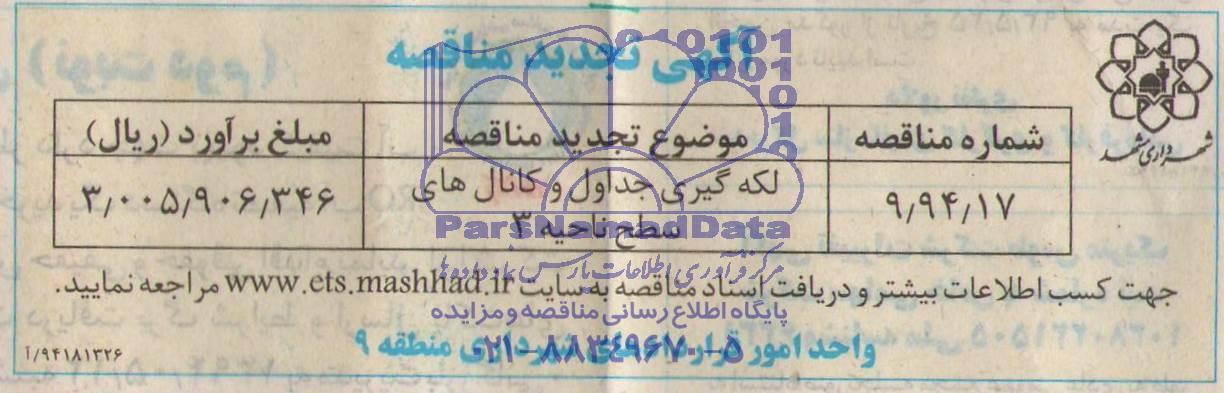 آگهی تجدید مناقصه
شهرداری مشهد
شماره مناقصه	موضوع تجدید مناقصه	مبلغ برآورد (ریال)
۹٫۹۴٫۱۷	لکه گیری جداول و کانال های	۳٫۰۰۵٫۹۰۶٫۳۴۶
سطح ناحیه ۳
ParsNamadData
مرکز فرآوری اطلاعات پارس نماد داده ها
جهت کسب اطلاعات بیشتر و دریافت اسناد مناقصه به سایت www.ets.mashhad.ir مراجعه نمایید.
پایگاه اطلاع رسانی مناقصه و مزایده
واحد امور قراردادهای شهرداری منطقه ۹
۰۲۱-۸۸۳۴۹۶۷۰-۵
۹۴۱۸۱۳۲۶/آ